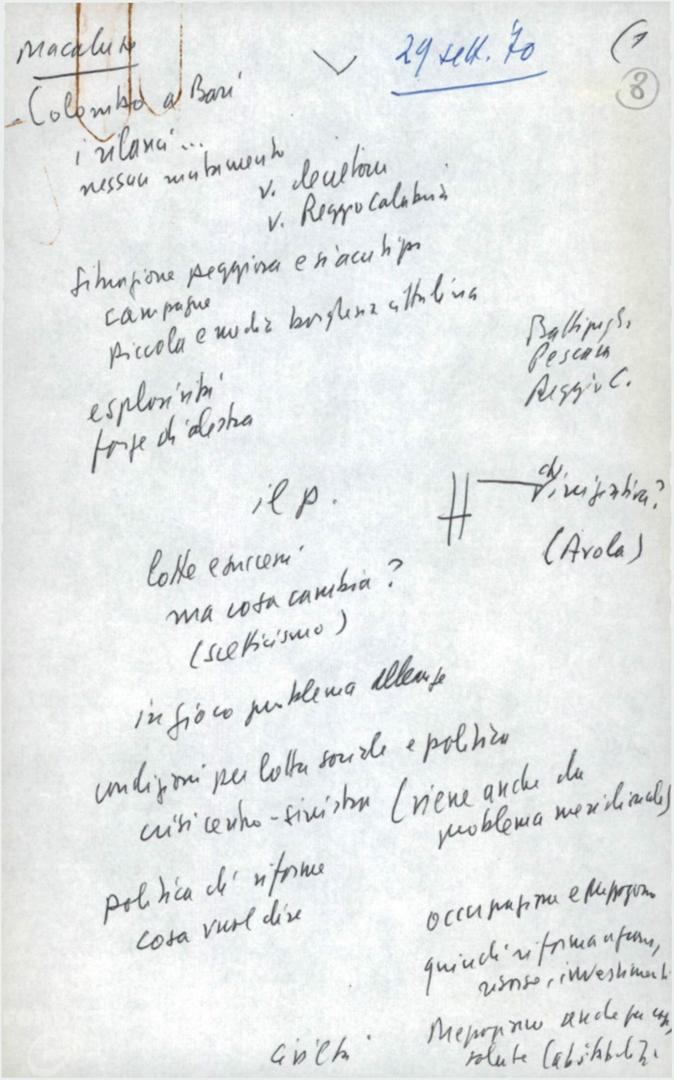 Macaluso
29 sett. '70
(1
8
- Colombo a Bari
i rilanci...
nessun mutamento
v. decretone
v. Reggio Calabria
Situazione peggiora e si acutizza
campagne
piccola e media borghesia cittadina
Battipaglia
Pescara
Reggio C.
esplosività
forze di destra
il p.
chi
(Avola)
lotte e successi
ma cosa cambia?
(scetticismo)
in gioco problema alleanze
condizioni per lotta sociale e politica
crisi centro-sinistra (viene anche da
problema meridionale)
politica di riforme
cosa vuol dire
occupazione e Mezzogiorno
quindi riforma agraria,
risorse, investimenti
Mezzogiorno anche per
salute
civiltà